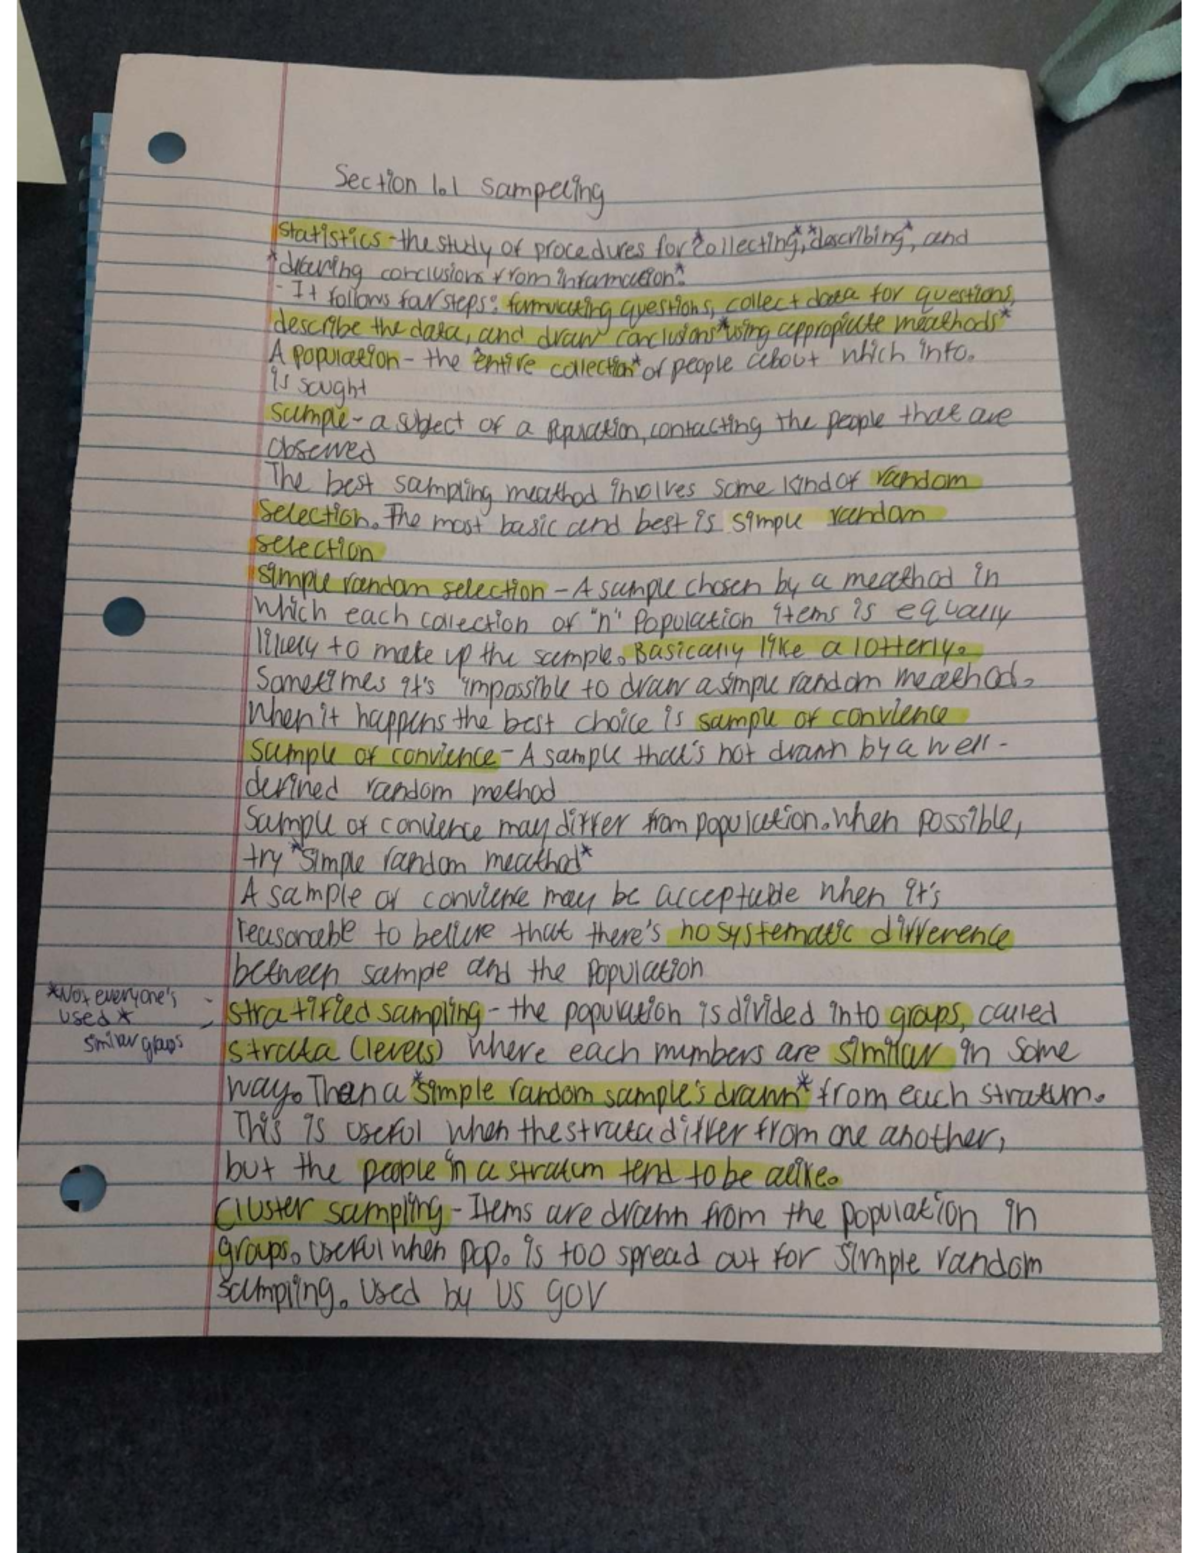 Section 1.1 Sampeling
Statistics - the study of procedures for *collecting*, *describing*, and
*drawing conclusions from information*.
- It follows four steps: formulating questions, collect data for questions,
describe the data, and draw conclusions *using appropiate meathods*
A population - the *entire collection* of people about which info.
is sought
Sample - a subject of a population, contacting the people that are
observed
The best sampling meathod involves some kind of random
selection. The most basic and best is simple random
selection
Simple random selection - A sample chosen by a meathod in
which each collection of "n" Population items is equally
likely to make up the sample. Basically like a lotterly.
Sometimes it's impossible to draw a simple random meathod.
When it happens the best choice is sample of convience
Sample of convience - A sample that's not drawn by a well-
defined random method
Sample of convience may differ from population. When possible,
try *simple random meathod*
A sample of convience may be acceptable when it's
reasonable to believe that there's no systematic difference
between sample and the Population
*Not everyone's
used *
similar groups
- Stratified sampling - the population is divided into groups, called
- strata (levels) where each mumbers are similar in some
way. Then a *simple random sample's drawn* from each stratum.
This is useful when the strata differ from one another,
but the people in a stratum tend to be alike.
Cluster sampling - Items are drawn from the population in
groups. Useful when pop. is too spread out for simple random
sampling. Used by US gov